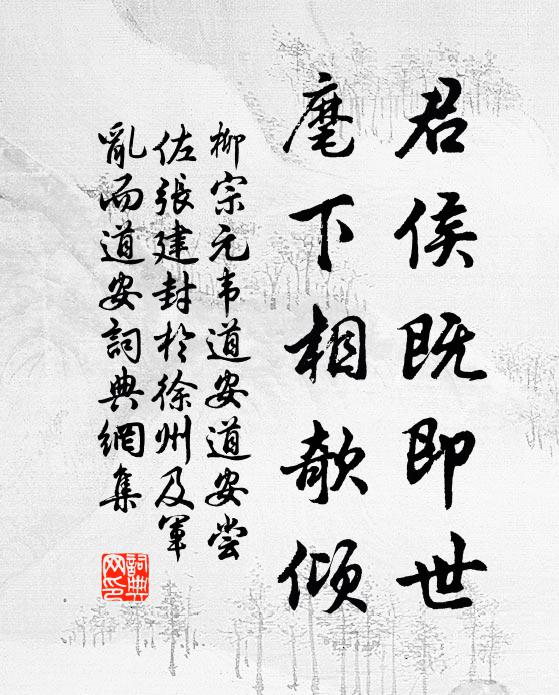 君侯既即世
麾下相欹倾
柳宗元韦道安道安尝
佐張建封於徐州及軍
亂而道安詞典網集
詞典網印